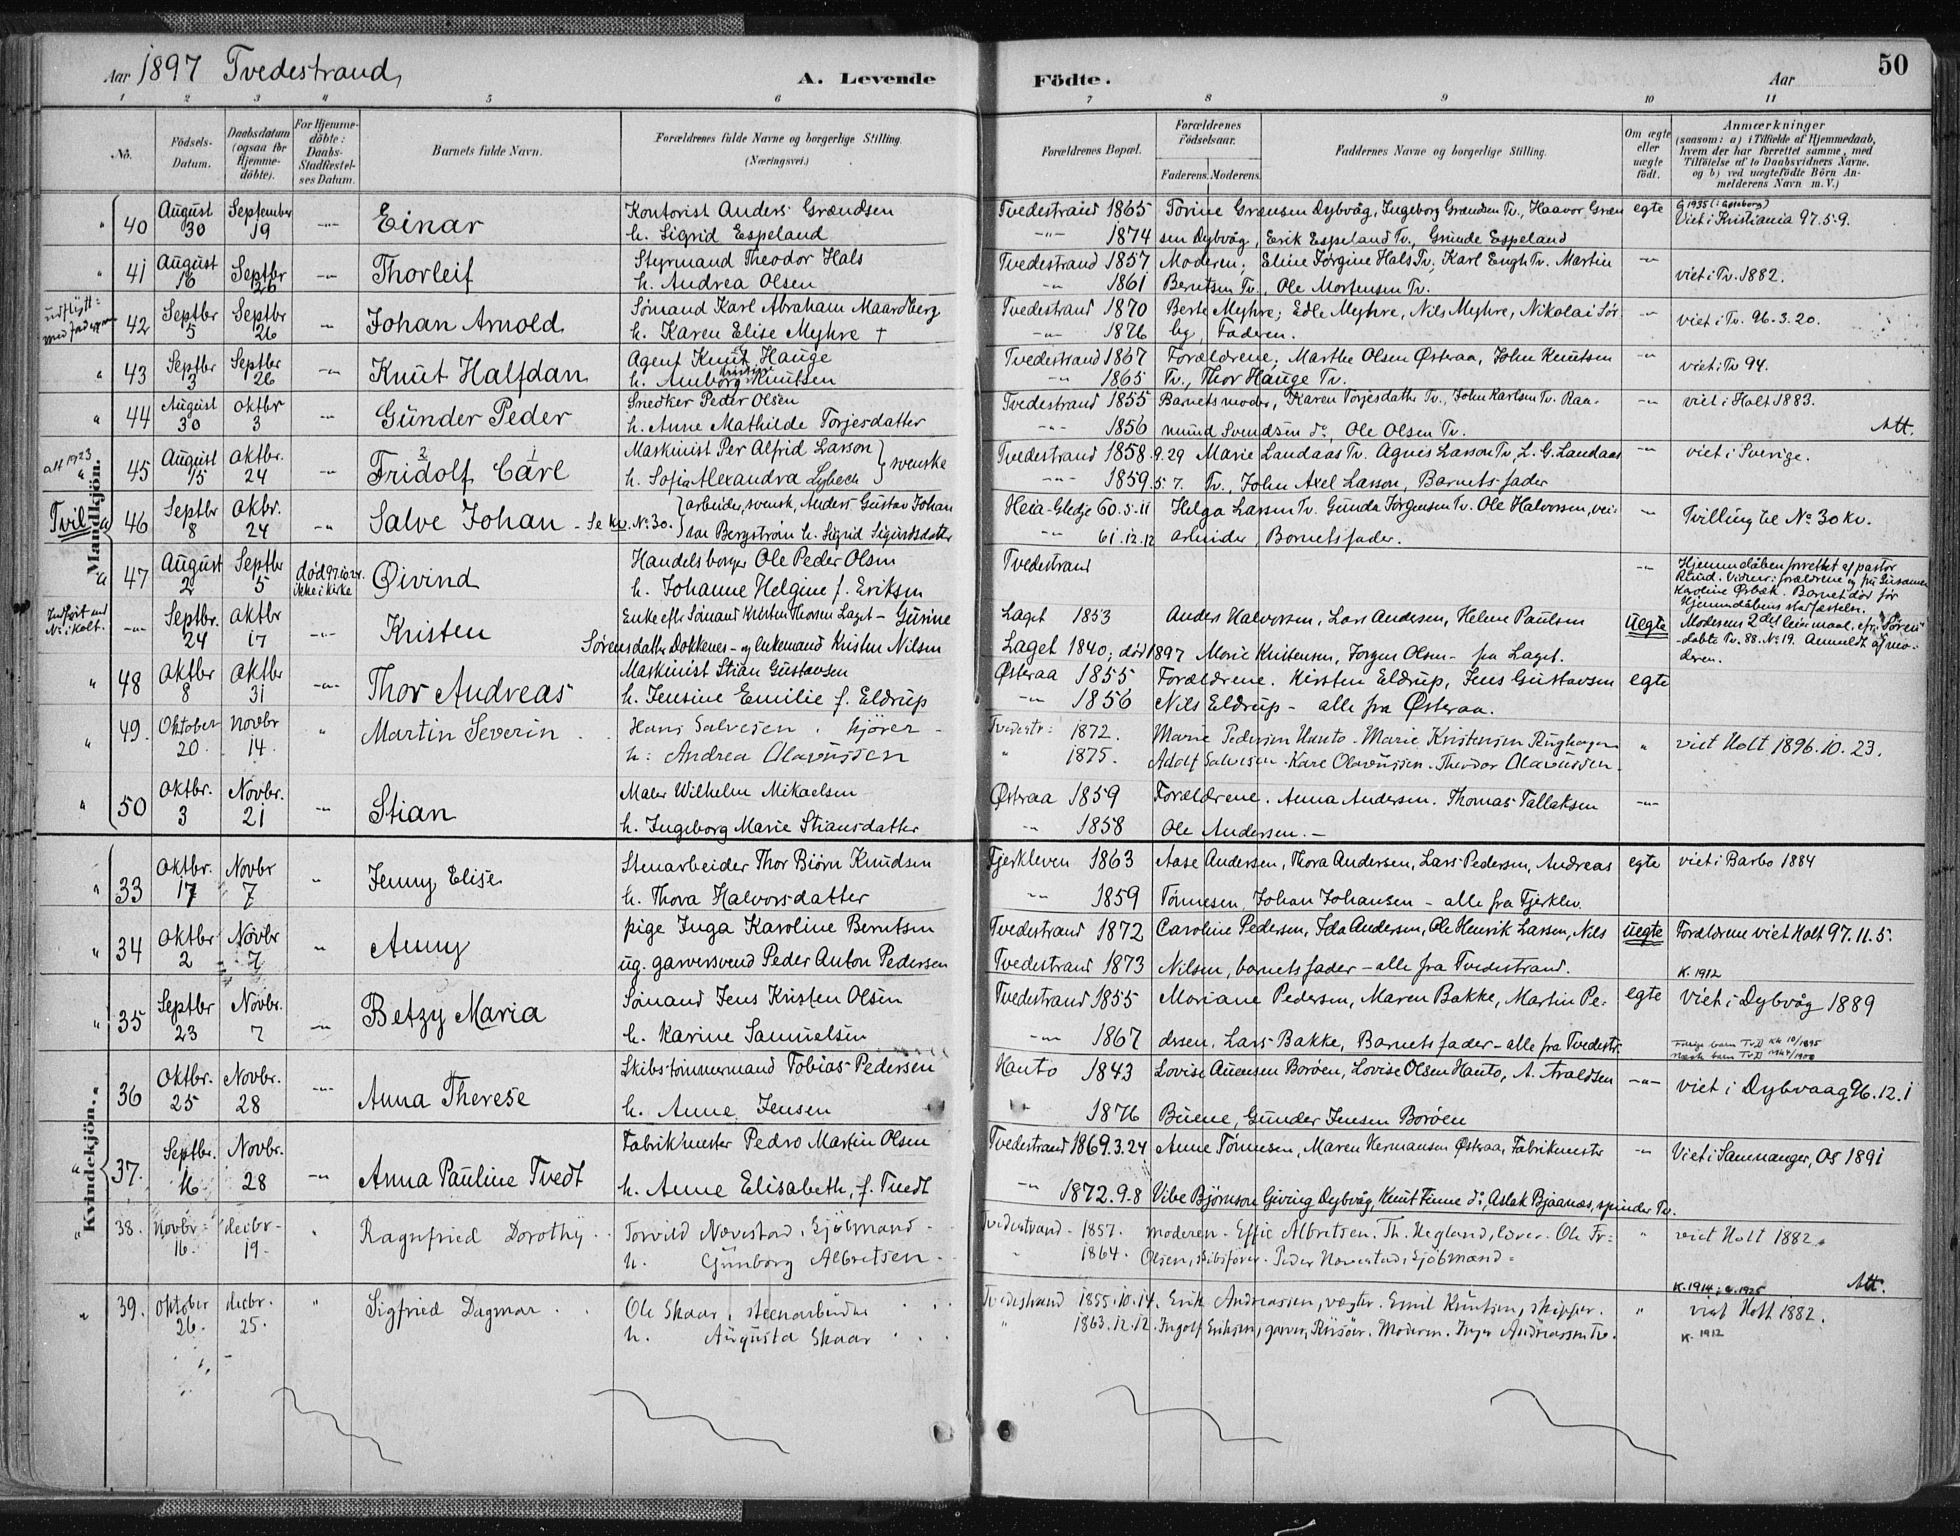 Aar 1897 Tvedestrand, A. Levende Födte. Aar 50
1 2 3 4 5 6 7 8 9 10 11
No. Födsels-Datum. Daabsdatum (ogsaa för Hjemme-döbte). For Hjemme-döbte: Daabs-Stadfæstel-ses Datum. Barnets fulde Navn. Forældrenes fulde Navne og borgerlige Stilling. (Næringsvei.) Forældrenes Bopæl. Forældrenes Födselsaar. Faderens. Moderens. Faddernes Navne og borgerlige Stilling. Om ægte eller uægte födt. Anmærkninger (saasom: a) i Tilfælde af Hjemmedaab, hvem der har forrettet samme, med Tilföielse af to Daabsvidners Navne. og b) ved uægtefödte Börn An-melderens Navn m. V.)
Mandkjön.
" 40 August 30 September 19 -"- Einar Kontorist Anders Grændsen Tvedestrand 1865 Torine Grænsen Dybvåg, Ingeborg Grændsen Tv., Haavor Græn egte G 1935 (: Gøteborg) Viet i Kristiania 97.5.9.
h. Sigrid Espeland -"- 1874 sen Dybvåg, Erik Espeland Tv., Gunde Espeland
" 41 August 16 Septbr 26 -"- Thorleif Styrmand Theodor Hals Tvedestrand 1857 Moderen; Eline Jörgine Hals Tv., Karl Engh Tv. Martin -"- viet i Tv. 1882.
h. Andrea Olsen -"- 1861 Berntsen Tv., Ole Mortensen Tv.
udflytt: 42 Septbr 5 Septbr 26 -"- Johan Arnold Sömand Karl Abraham Maardberg Tvedestrand 1870 Berte Myhre; Edle Myhre, Nils Myhre, Nikolai Sør -"- viet i Tv. 96.3.20.
h. Karen Elise Myhre † -"- 1876 by, Faderen.
" 43 Septbr 3 Septbr 26 -"- Knut Halfdan Agent Knut Hauge Tvedestrand 1867 Forældrene, Marthe Olsen Østeraa, John Knutsen -"- viet i Tv 94.
h. Amborg Kristine Knutsen -"- 1865 Tv., Thor Hauge Tv.
" 44 August 30 Oktbr 3 -"- Günder Peder Snedker Peder Olsen Tvedestrand 1855 Barnets moder, Karen Torjesdatter Tv., John Karlsen Tv. Raa- -"- viet i Holt 1883.
h. Anne Mathilde Torjesdatter -"- 1856 mund Svendsen do, Ole Olsen Tv. Att.
att 1923 " 45 August 15 Oktbr. 24 -"- Fridolf 2 Carl 1 Maskinist Per Alfrid Larson } svenske Tvedestrand 1858.9.29 Marie Landaas Tv. Agnes Larson Tv, L. G. Landaas -"- viet i Sverige.
h. Sofia Alexandra Lybeck -"- 1859.5 7. Tv., John Axel Larson, Barnets fader
Tvil. " 46 Septbr 8 Okbr. 24 -"- Salve Johan - Se kv. No. 30. { arbeider, svensk, Anders Gustav Johan Heia-Gletje 60.5.11 Helga Larsen Tv. Gunda Jörgensen Tv. Ole Halvorsen, vei- -"- Tvilling til No 30 kv.
son Bergström h. Sigrid Sigurdsdatter -"- 61.12.12 arbeider, Barnets fader.
" 47 August 2 Septbr 5 död 97.10.24. ikke i kirke Øivind Handelsborger Ole Peder Olsen Tvedestrand -"- Hjemmedåben forrettet af pastor Rund. Vidner: forældrene og frk Susanne Karoline Örbæk. Barnet død før Hjemmdåbens stadfæstelse.
h. Johanne Helgine f. Eriksen
Indført med No i Holt. -"- Septbr. 24 Oktbr 17 -"- Kristen Enke efter Sömand Kristen Thorsen Laget - Gurine Laget 1853 Anders Halvorsen, Lars Andersen, Helene Paulsen Uegte Moderens 2det leiermaal, efr. Sören döbte Tv. 88. No 19. Anmeldt af mo-deren.
Sørensdatter Dokkenes - og enkemand Kristen Nilsen Laget 1840; död 1897 Marie Kristensen, Jörgen Olsen - fra Laget.
" 48 Oktbr 8 Oktbr 31 -"- Thor Andreas Maskinist Stian Gustavsen Østeraa 1855 Forældrene. Kirsten Eldrup, Jens Gustavsen egte
h. Jensine Emilie f. Eldrup -"- 1856 Nils Eldrup - alle fra Østeraa.
" 49. Oktober 20. Novbr 14. " Martin Severin. Hans Salvesen. kjörer - Tvedestr: 1872. Marie Pedersen Hanto. Marie Kristensen Rughagen " viet Holt 1896.10.23.
h: Andrea Olavussen " 1875. Adolf Salvesen. Kare Olavussen. Theodor Olavussen.
" 50 Oktbr. 3 Novbr. 21 -"- Stian Maler Wilhelm Mikaelsen Østeraa 1859 Forældrene. Anna Andersen. Thomas Tallaksen -"-
h. Ingeborg Marie Stiansdatter -"- 1858 Ole Andersen. -
Kvindekjön.
" 33 Oktbr. 17 Novbr 7 " Jenny Elise Stenarbeider Thor Biörn Knudsen Fjerkleven 1863 Aase Andersen, Thora Andersen, Lars Pedersen, Andreas egte viet i Barbo 1884
h. Thova Halvorsdatter -"- 1859 Tönnesen, Johan Johansen - alle fra Fjerklev.
" 34 Oktbr 2 Novbr 7 " Anny pige Inga Karoline Berntsen Tvedestrand 1872 Caroline Pedersen, Ida Andersen, Ole Henrik Larsen, Nils uegte Forældrene viet Holt 97.11.5.
ug. garversvend Peder Anton Pedersen Tvedestrand 1873 Nilsen, barnets fader - alle fra Tvedestrand. K. 1912
" 35 Septbr 23 Novbr. 7 -"- Betzy Maria Sömand Jens Kristen Olsen Tvedestrand 1855 Moriane Pedersen, Maren Bakke, Martin Pe: egte viet i Dybvåg 1889
h. Karine Samuelsen -"- 1867 dersen, Lars Bakke, Barnets fader - alle fra Tvedestr.
" 36 Oktbr. 25 Novbr. 28 -"- Anna Therese Skibstömmermand Tobias Pedersen Hanto 1843 Lovise Auensen Boröen, Lovise Olsen Hanto, A. Araldsen -"- viet i Dybvaag 96.12.1
h. Anne Jensen " 1876 Buene, Gunder Jensen Boröen
" 37. Septbr. 16 Novbr. 28 -"- Anna Pauline Tvedt Fabrikmester Pedro Martin Olsen Tvedestrand 1869.3.24 Anne Tönnesen, Maren Hermansen Østeraa, Fabrikmester -"- Viet i Samnanger, Os 1891
h. Anne Elisabeth, f. Tvedt -"- 1872.9.8 Vibe Björnson Giving Dybvåg, Knut Finne do, Aslak Bjaanæs, spinder Tv.
" 38. Novbr: 16. decbr - 19. " Ragnfried Dorothy. Torvild Næverstad. Sjöbmand - Tvedestrand - 1857. moderen - Effie Albretsen. Th. Hegland, lærer. Ole Fr= " viet Holt 1882.
h. Günborg Albretsen - " 1864. Olsen, skibsfører. Peder Næverstad, Sjöbmænd -
" 39. Oktober 26. decbr. 25. " Sigfried Dagmar. Ole Skaar, steenarbeider Tvedestrand 1855.10.14. Erik Andreassen, vægter. Emil Knutsen, skipper. " K. 1914; a. 1925 Att. viet Holt 1882.
h. Augusta Skaar " 1863.12.12. Ingolf Eriksen, garver, Risør. Moderen. Inger Andreassen Tv. K. 1912